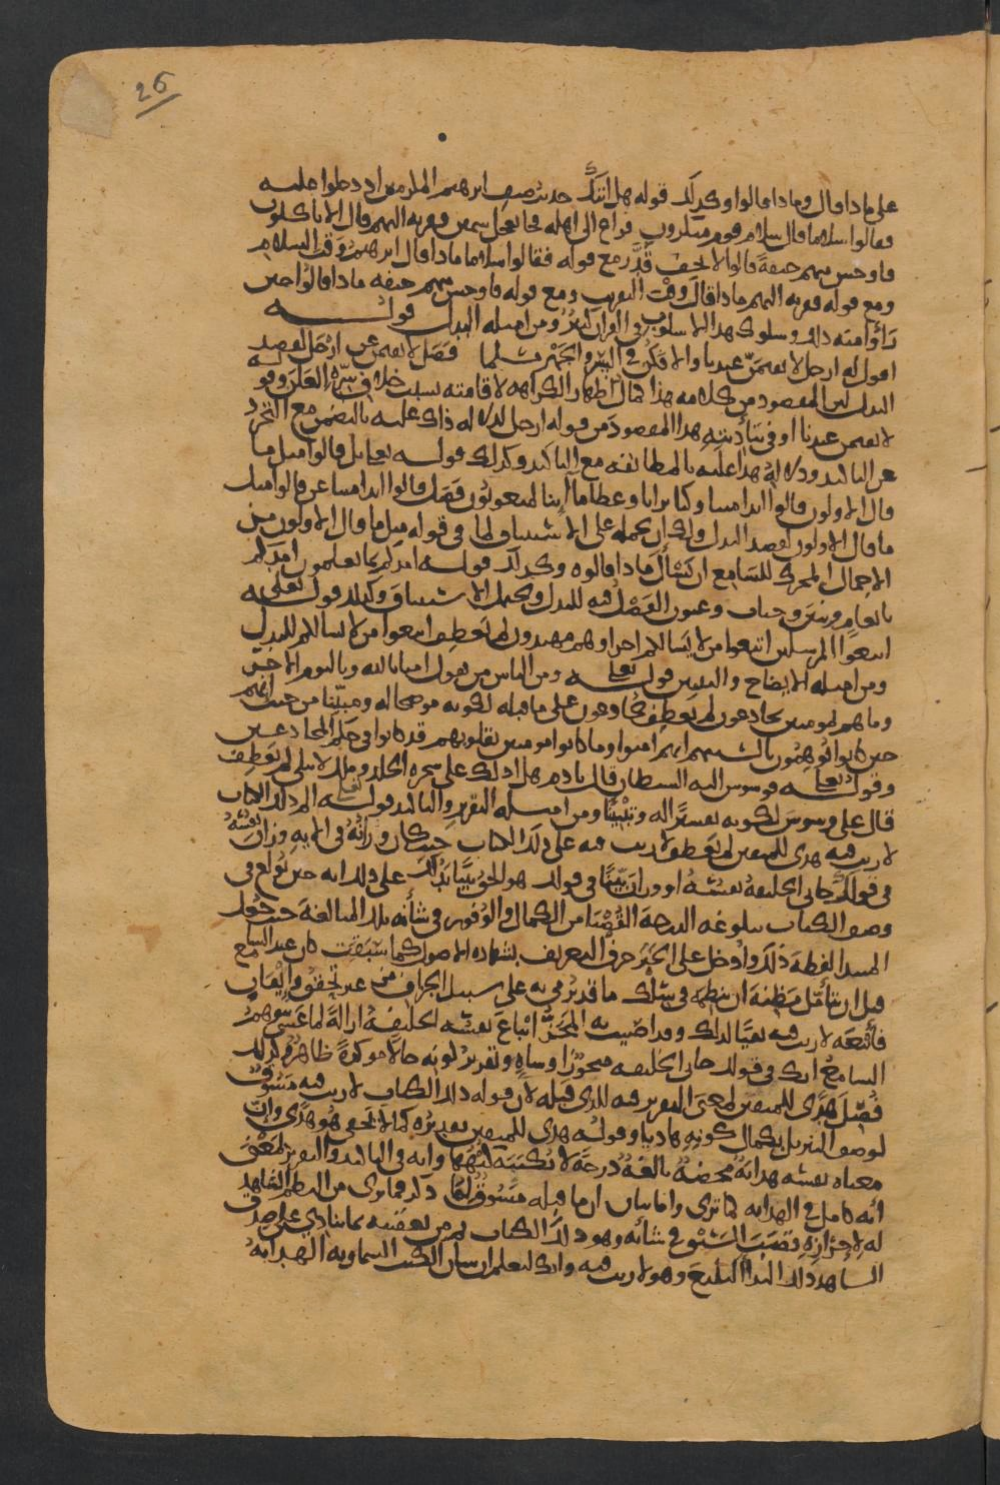 26
على ماذا قال وماذا قالوا وكذلك قوله هل اتاك حديث ضيف ابرهيم المكرمين اذ دخلوا عليه
فقالوا سلاما قال سلام قوم منكرون فراغ الى اهله فجا بعجل سمين فقربه اليهم قال الا تاكلون
فاوجس منهم خيفة قالوا لا تخف قدر مع قوله فقالوا سلاما ماذا قال ابرهيم وقت السلام
ومع قوله فقربه اليهم ماذا قال وقت التقريب ومع قوله فاوجس منهم خيفه ماذا قالوا حين
راوا منه ذلك وسلوك هذا الاسلوب في القران كثير ومن امثله البدل قوله
اقول له ارحل لا تقيمن عندنا والا فكن في السر والجهر مسلما فصل لا تقيمن عن ارحل لقصد
البدل لان المقصود من كلامه هذا كمال اظهار الكراهه لاقامته بسبب خلاف سره العلن وقوله
لا تقيمن عندنا اوفى بتأديته هذا المقصود من قوله ارحل لدلاله ذاك عليه بالتضمن مع التجرد
عن التاكيد ودلالة هذا عليه بالمطابقه مع التاكيد وكذلك قوله تعالى بل قالوا مثل ما
قال الاولون قالوا ائذا متنا وكنا ترابا وعظاما أينا لمبعوثون فصل قالوا ائذا متنا عن قالوا مثل
ما قال الاولون لقصد البدل ولك ان تحمله على الاستيناف لما في قوله مثل ما قال الاولون من
الاجمال المحرك للسامع ان يسأل ماذا قالوه وكذلك قوله امدكم بما تعلمون امدكم
بانعام وبنين وجنات وعيون الفصل فيه للبدل ويحتمل الاستيناف وكذلك قوله تعالى
اتبعوا المرسلين اتبعوا من لا يسالكم اجرا وهم مهتدون لم يعطف اتبعوا من لا يسالكم للبدل
ومن امثله الايضاح والتبيين قوله تعالى ومن الناس من يقول امنا بالله وباليوم الاخر
وما هم بمومنين يخادعون لم يعطف يخادعون على ما قبله لكونه موضحا له ومبينا من حيث انهم
حين كانوا يوهمون بالسنتهم انهم امنوا وما كانوا مومنين بقلوبهم قد كانوا في حكم المخادعين
وقوله تعالى فوسوس اليه الشيطان قال يادم هل ادلك على شجره الخلد وملك لا يبلى لم يعطف
قال على وسوس لكونه تفسيرا له وتبيينا ومن امثله التقرير والتاكيد قوله تعالى الم ذلك الكتاب
لا ريب فيه هدى للمتقين لم يعطف لا ريب فيه على ذلك الكتاب حين كان وزانه في الايه وزان نفسه
في قولك جاني الخليفة نفسه او وزان بينا في قولك هو الحق بينا يدلك على ذلك انه حين بولغ في
وصف الكتاب ببلوغه الدرجة القصيا من الكمال والوفور في شأنه تلك المبالغة حيث جعل
المبتدا لفظة ذلك وادخل على الخبر حرف التعريف بشهاده الاصول كما سبقت كان عند السامع
قبل ان يتأمل مظنة ان ينظمه في سلك ما قد يرمى به على سبيل الجزاف من غير تحقق وايقان
فأتبعه لا ريب فيه نفيا لذلك وقد اصيب به المحز اتباع نفسه الخليفة ازالة لما عسى يتوهم
السامع انك في قولك جاني الخليفه متجوز اوساه وتقرير كونه حالا موكدة ظاهر وكذلك
فصل هدى للمتقين لمعنى التقرير فيه للذي قبله لان قوله ذلك الكتاب لا ريب فيه مسوق
لوصف التنزيل بكمال كونه هاديا وقوله هدى للمتقين تقديره كما لا يخفى هو هدى وان
معناه نفسه هداية محضة بالغة درجة لا يكتنه كنهها وانه في التاكيد والتقرير لمعنى
أنه كامل في الهدايه كما ترى واما بيان ان ما قبله مسوق لما ذكر فما ترى من النظم الشاهد
له لاحرازه قصب السبق في شأنه وهو ذلك الكتاب ثم من تعقيبه بما ينادي على صدق
الشاهد ذلك الندا البليغ وهو لا ريب فيه وانك لتعلم ان شان الكتب السماويه الهداية